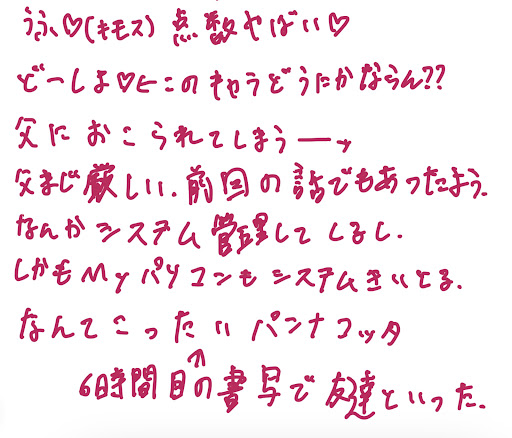 うふ♡(キモス) 点数やばい♡
どーしよ♡←このキャラどうにかならん??
父におこられてしまうー→
父まじ厳しい、前回の話でもあったよう、
なんかシステム管理してしるし、
しかもMyパソコンもシステムきいとる、
なんてこったいパンナコッタ
↑
6時間目の書写で友達といった、